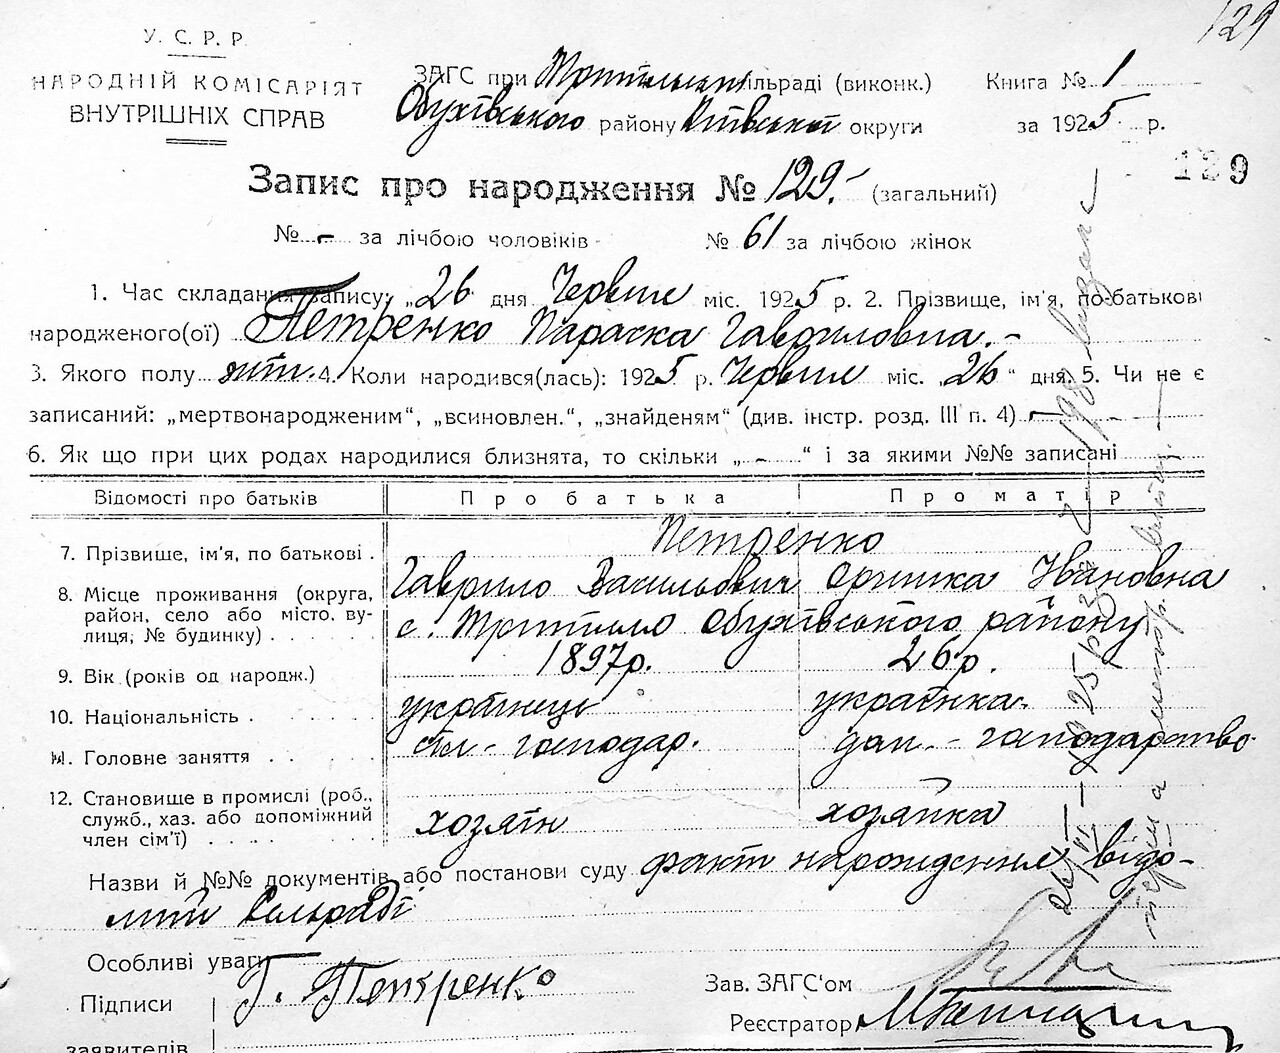 129
У. С. Р. Р.
НАРОДНІЙ КОМІСАРІЯТ
ВНУТРІШНІХ СПРАВ
ЗАГС при сільраді (виконк.)
Обухівського району Київської округи
Книга № 1
за 1925 р.
129
Запис про народження № 129.- (загальний)
№ - за лічбою чоловіків № 61 за лічбою жінок
1. Час складання запису: „26 дня Червня міс. 1925 р. 2. Прізвище, ім'я, по батькові
народженого(ої) Петренко Параска Гавриловна.-
3. Якого полу жін. 4. Коли народився(лась): 1925 р. Червня міс. „26" дня. 5. Чи не є
записаний: „мертвонародженим", „всиновлен.", „знайденям" (див. інстр. розд. III п. 4) -
6. Як що при цих родах народилися близнята, то скільки „ - " і за якими №№ записані
Відомості про батьків Про батька Про матір
7. Прізвище, ім'я, по батькові . Петренко
Гаврило Васильович Оришка Івановна
8. Місце проживання (округа,
район, село або місто, ву-
лиця, № будинку) . . . . . .
с. Обухівського району
9. Вік (років од народж.) 1897р. 26р.
10. Національність . українець українка.
11. Головне заняття . . господар. дом. - господарство
12. Становище в промислі (роб.,
служб., хаз. або допоміжний
член сім'ї) . . . .
хозяїн хозяйка
Назви й №№ документів або постанови суду факт народження відо-
мий Сельраді
Особливі уваги
Підписи
заявителів
Г. Петренко
Зав. ЗАГС'ом
Реєстратор